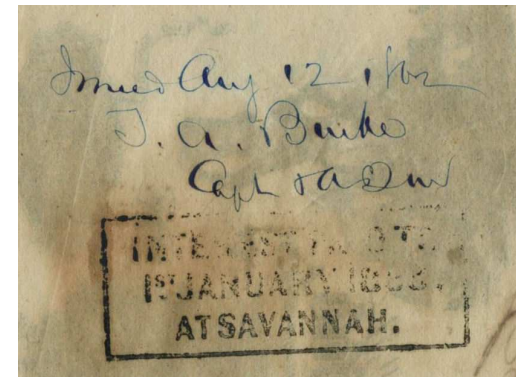 Issued Aug 12 1862
T. A. Burke
Capt & AQM
INTEREST PAID TO
1st JANUARY 1863.
AT SAVANNAH.